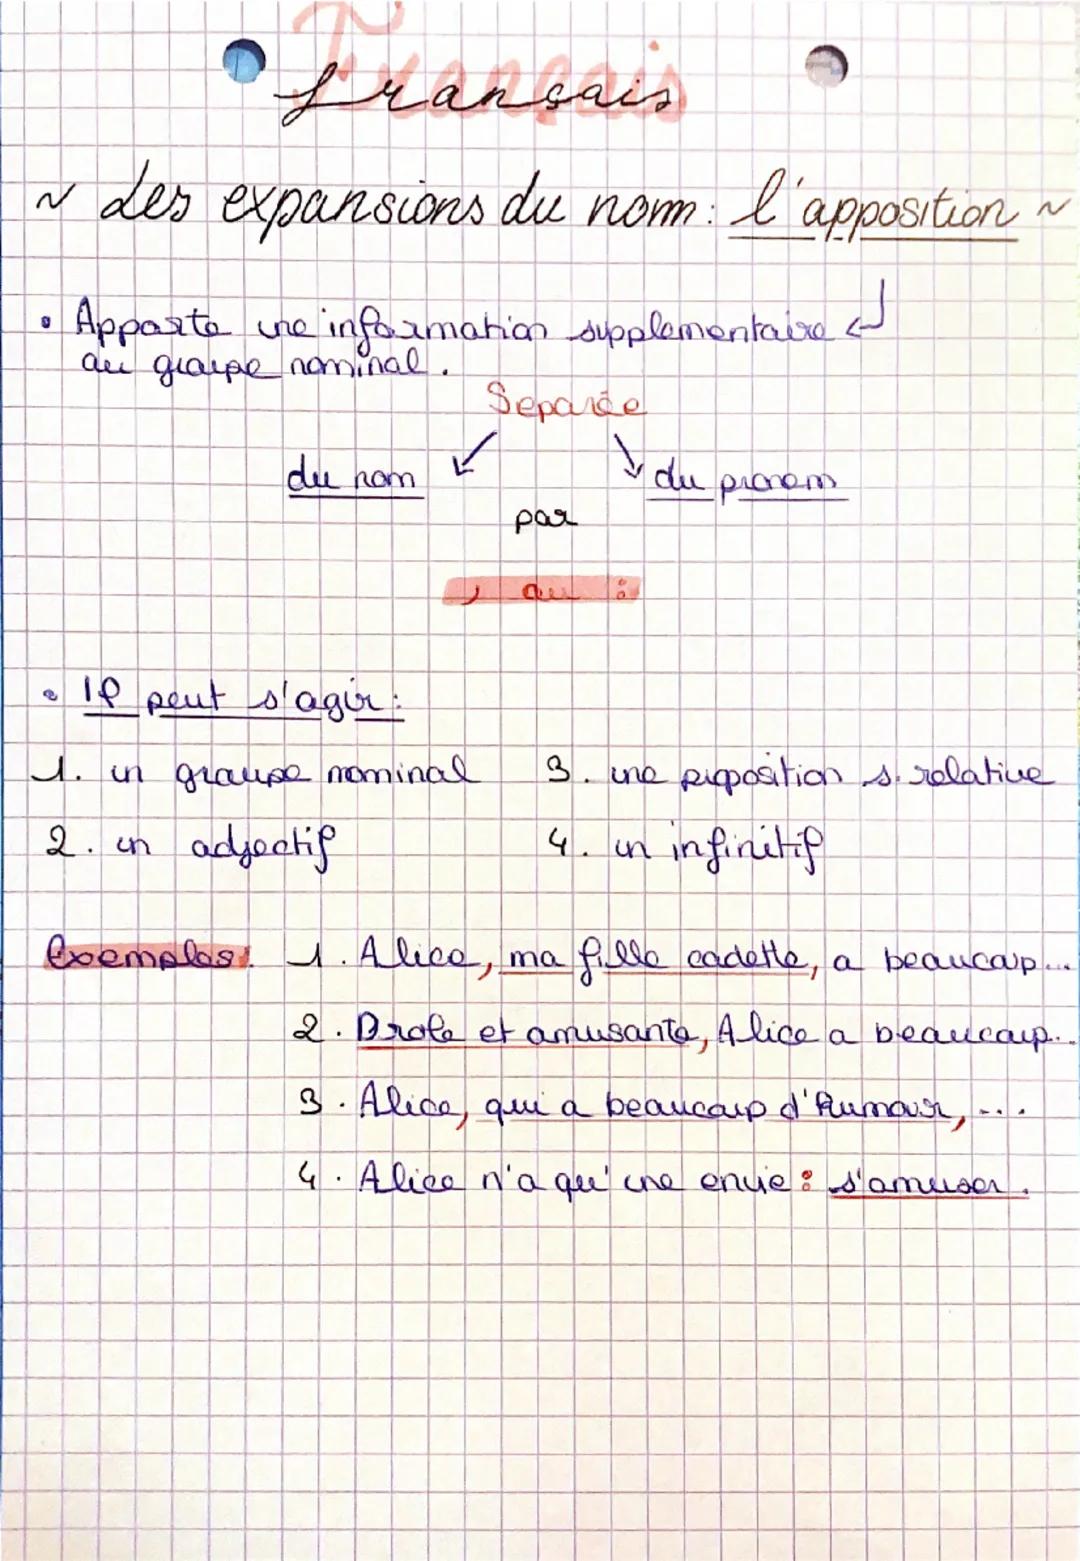 Français
français
~ Les expansions du nom : l'apposition ~
• Apporte une information supplementaire
au groupe nominal.
Separée
du nom du pronom
par
, ou :
• Il peut s'agir :
1. un groupe nominal 3. une proposition s. relative
2. un adjectif 4. un infinitif
Exemples: 1. Alice, ma fille cadette, a beaucoup...
2. Drole et amusante, Alice a beaucoup...
3. Alice, qui a beaucoup d'humour, ...
4. Alice n'a qu'une envie : s'amuser.